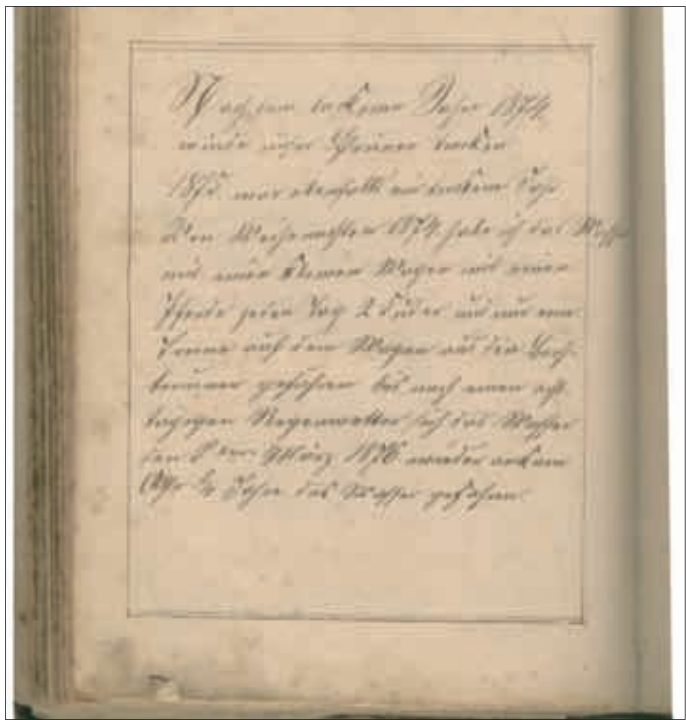 Nach dem trockenen Jahr 1874
wurde unser Brunnen trocken
1875 war ebenfalls ein trockenes Jahr
Von Weihnachten 1874 habe ich das Wasser
mit einen kleinen Wagen mit einen
Pferde jeden Tag 2 Fuder und nur eine
Tonne auf dem Wagen aus den
brunnen gefahren bis nach einen acht
tagigen Regenwetter sich das Wasser
den 8 ten März 1876 wieder ankam
Also Jahre das Wasser gefahren